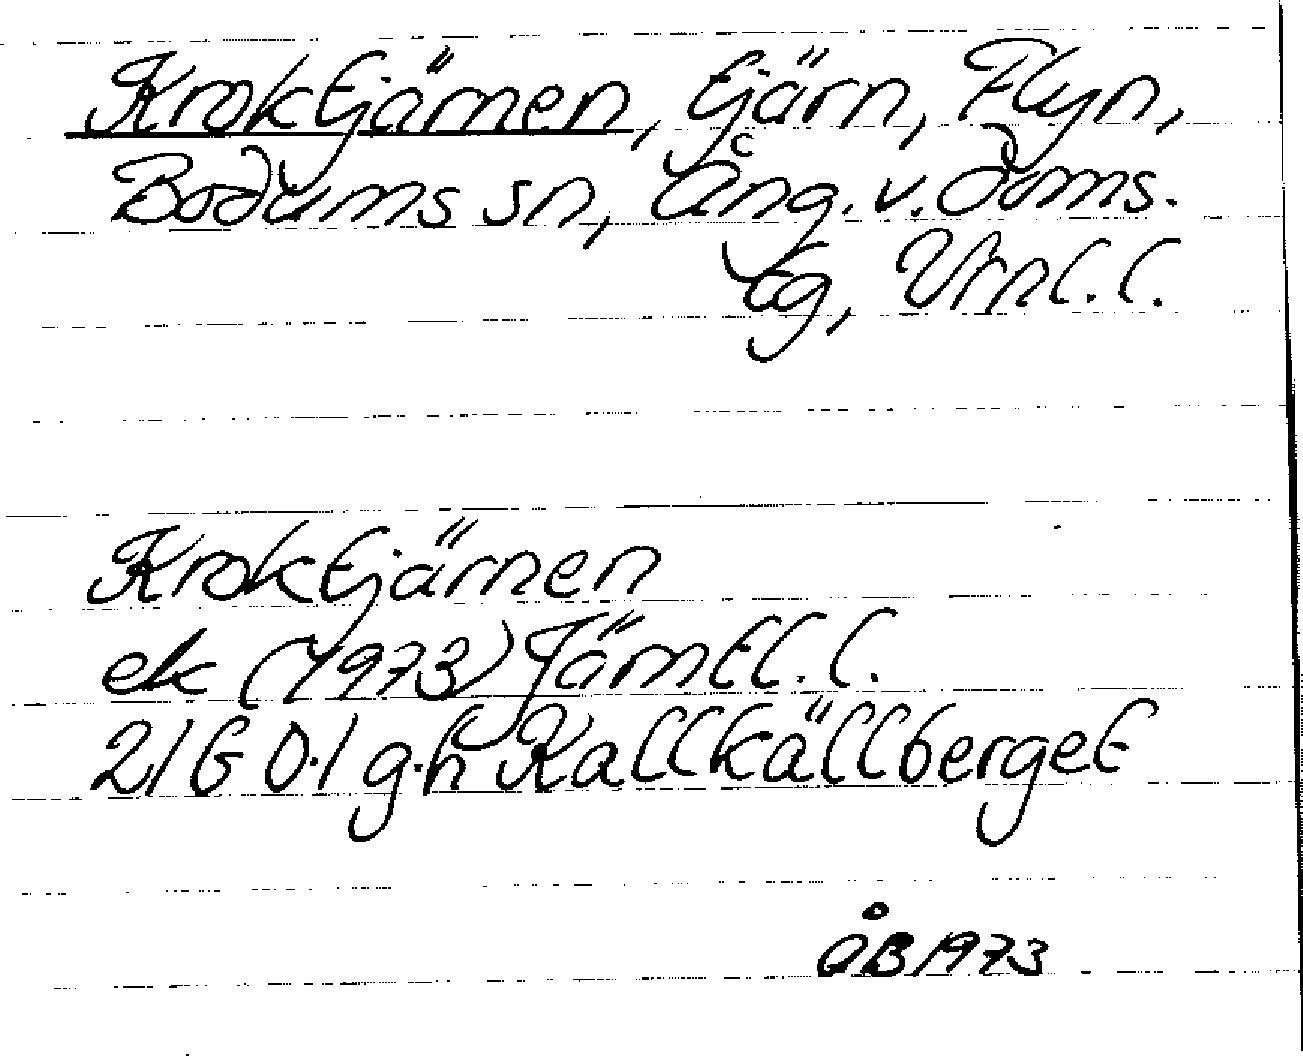 Kroktjärnen, tjärn, Flyn,
Bodums sn, Ång. v. doms.
tg, Vrnl. l.
Kroktjärnen
ek (1973) Jämtl. l.
21G 0-1 g-h Kallkällberget
ÅB 1973